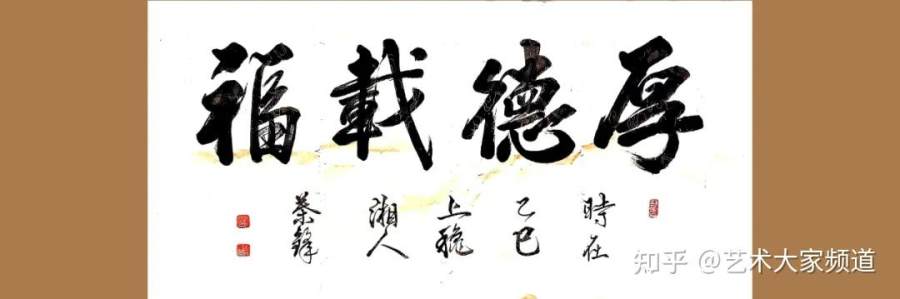 厚德載福
時在
乙巳
上
湘人
蔡鋒
知乎 @艺术大家频道